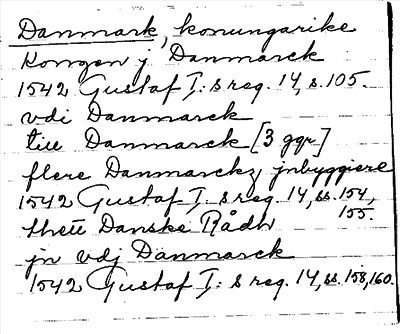 Danmark, konungarike
Kongen j Danmarck
1542 Gustaf I:s reg. 14, s. 105.
vdi Danmarck
till Danmarck [3 ggr]
flere Danmarckz jnbyggiere
1542 Gustaf I:s reg. 14, ss. 154,
155.
thett Danske Rådh
jn vdj Danmarck
1542 Gustaf I:s reg. 14, ss. 158, 160.